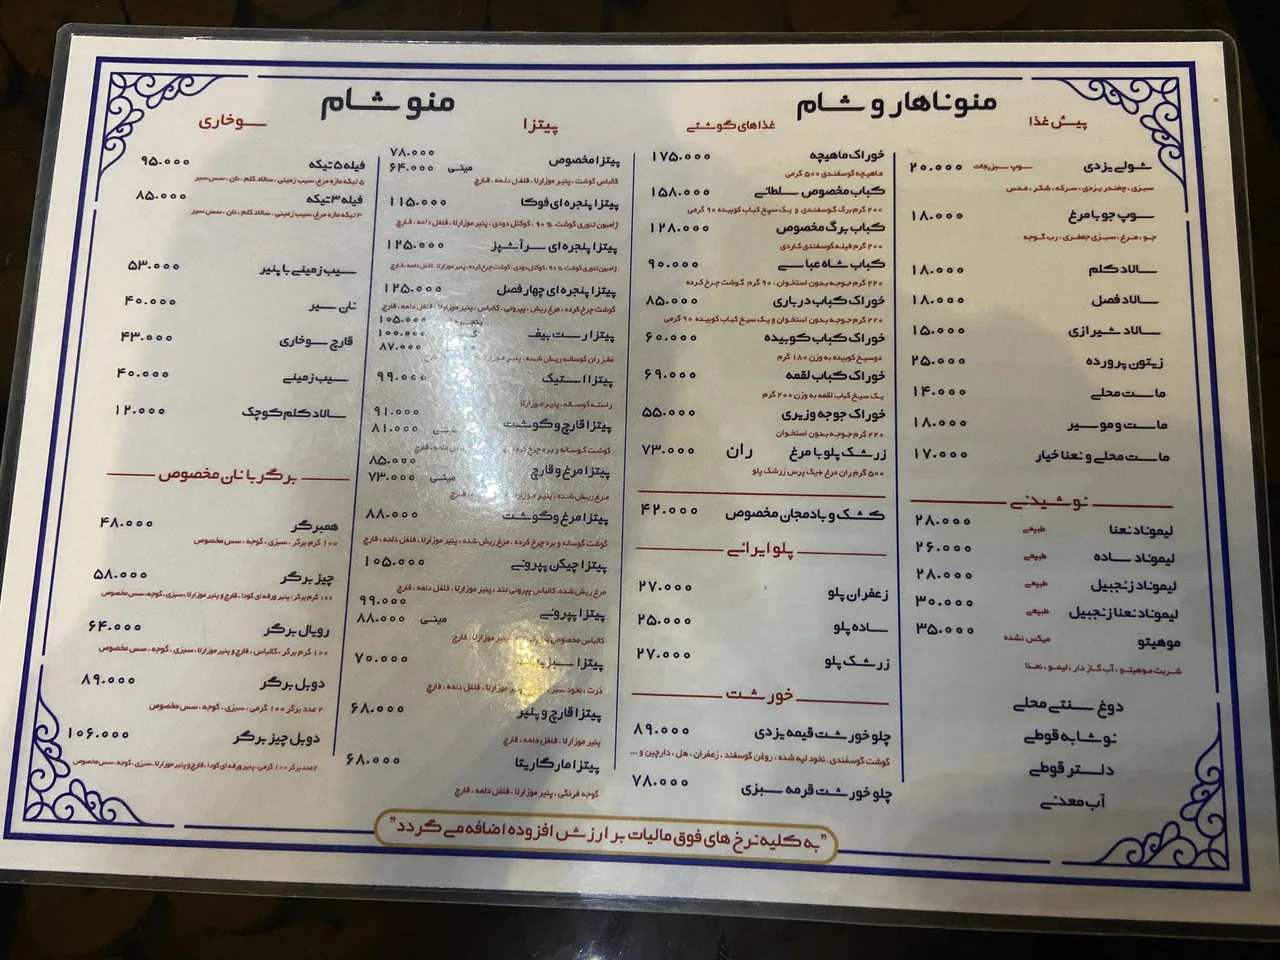 منو ناهار و شام
پیش غذا
شولی یزدی سوپ سبزیجات ۲۰.۰۰۰
سبزی، چغندر یزدی، سرکه، شکر، عدس
سوپ جو با مرغ ۱۸.۰۰۰
جو، مرغ، سبزی جعفری، رب گوجه
سالاد کلم ۱۸.۰۰۰
سالاد فصل ۱۸.۰۰۰
سالاد شیرازی ۱۵.۰۰۰
زیتون پرورده ۲۵.۰۰۰
ماست محلی ۱۴.۰۰۰
ماست و موسیر ۱۸.۰۰۰
ماست محلی و نعنا خیار ۱۷.۰۰۰
نوشیدنی
لیموناد نعنا طبیعی ۲۸.۰۰۰
لیموناد ساده طبیعی ۲۶.۰۰۰
لیموناد زنجبیل طبیعی ۲۸.۰۰۰
لیموناد نعنا زنجبیل طبیعی ۳۰.۰۰۰
موهیتو میکس نشده ۳۵.۰۰۰
شربت موهیتو، آب گاز دار، لیمو، نعنا
دوغ سنتی محلی
نوشابه قوطی
دلستر قوطی
آب معدنی
غذاهای گوشتی
خوراک ماهیچه ۱۷۵.۰۰۰
ماهیچه گوسفندی ۵۰۰ گرمی
کباب مخصوص سلطانی ۱۵۸.۰۰۰
۲۰۰ گرم برگ گوسفندی و یک سیخ کباب کوبیده ۹۰ گرمی
کباب برگ مخصوص ۱۲۸.۰۰۰
۲۰۰ گرم فیله گوسفندی کاردی
کباب شاه عباسی ۹۰.۰۰۰
۲۲۰ گرم جوجه بدون استخوان، ۹۰ گرم گوشت چرخ کرده
خوراک کباب درباری ۸۵.۰۰۰
۲۲۰ گرم جوجه بدون استخوان و یک سیخ کباب کوبیده ۹۰ گرمی
خوراک کباب کوبیده ۶۰.۰۰۰
دو سیخ کوبیده به وزن ۱۸۰ گرم
خوراک کباب لقمه ۶۹.۰۰۰
یک سیخ کباب لقمه به وزن ۲۰۰ گرم
خوراک جوجه وزیری ۵۵.۰۰۰
۲۲۰ گرم جوجه بدون استخوان
زرشک پلو با مرغ ران ۷۳.۰۰۰
۵۰۰ گرم ران مرغ + یک پرس زرشک پلو
کشک و بادمجان مخصوص ۴۲.۰۰۰
پلو ایرانی
زعفران پلو ۲۷.۰۰۰
ساده پلو ۲۵.۰۰۰
زرشک پلو ۲۷.۰۰۰
خورشت
چلو خورشت قیمه یزدی ۸۹.۰۰۰
گوشت گوسفندی، نخود لپه شده، روغن گوسفند، زعفران، هل، دارچین و ...
چلو خورشت قرمه سبزی ۷۸.۰۰۰
منو شام
پیتزا
پیتزا مخصوص ۷۸.۰۰۰
مینی ۶۴.۰۰۰
کالباس گوشت، پنیر موزارلا، فلفل دلمه، قارچ
پیتزا پنجره ای فوکا ۱۱۵.۰۰۰
ژامبون تنوری گوشت ۹۰%، کوکتل دودی، پنیر موزارلا، فلفل دلمه، قارچ
پیتزا پنجره ای سرآشپز ۱۲۵.۰۰۰
ژامبون تنوری گوشت ۹۰%، کوکتل دودی، گوشت چرخ کرده، پنیر موزارلا، فلفل دلمه، قارچ
پیتزا پنجره ای چهار فصل ۱۲۵.۰۰۰
گوشت چرخ کرده، مرغ ریش، پپرونی، کالباس، پنیر موزارلا، فلفل دلمه، قارچ
۱۰۵.۰۰۰
پیتزا رست بیف ۱۰۰.۰۰۰
۸۷.۰۰۰
مغز ران گوساله ریش شده، پنیر موزارلا
پیتزا استیک ۹۹.۰۰۰
راسته گوساله، پنیر موزارلا
۹۱.۰۰۰
پیتزا قارچ و گوشت مینی ۸۱.۰۰۰
گوشت گوساله و بره چرخ کرده
۸۵.۰۰۰
پیتزا مرغ و قارچ مینی ۷۳.۰۰۰
مرغ ریش شده، پنیر موزارلا، فلفل دلمه، قارچ
پیتزا مرغ و گوشت ۸۸.۰۰۰
گوشت گوساله و بره چرخ کرده، مرغ ریش شده، پنیر موزارلا، فلفل دلمه، قارچ
پیتزا چیکن پپرونی ۱۰۵.۰۰۰
مرغ ریش شده، کالباس پپرونی تند، پنیر موزارلا، فلفل دلمه، قارچ
۹۹.۰۰۰
پیتزا پپرونی مینی ۸۸.۰۰۰
کالباس مخصوص پپرونی، پنیر موزارلا، فلفل دلمه، قارچ
پیتزا ۷۰.۰۰۰
ذرت، نخود سبز، پنیر موزارلا، فلفل دلمه، قارچ
پیتزا قارچ و پنیر ۶۸.۰۰۰
پنیر موزارلا، فلفل دلمه، قارچ
پیتزا مارگاریتا ۶۸.۰۰۰
گوجه فرنگی، پنیر موزارلا، فلفل دلمه، قارچ
سوخاری
فیله ۵ تیکه ۹۵.۰۰۰
۵ تیکه مازه مرغ، سیب زمینی، سالاد کلم، نان، سس سیر
فیله ۳ تیکه ۸۵.۰۰۰
۳ تیکه مازه مرغ، سیب زمینی، سالاد کلم، نان، سس سیر
سیب زمینی با پنیر ۵۳.۰۰۰
نان سیر ۴۰.۰۰۰
قارچ سوخاری ۴۳.۰۰۰
سیب زمینی ۴۰.۰۰۰
سالاد کلم کوچک ۱۲.۰۰۰
برگر با نان مخصوص
همبرگر ۴۸.۰۰۰
۱۰۰ گرم برگر، سبزی، گوجه، سس مخصوص
چیز برگر ۵۸.۰۰۰
۱۰۰ گرم برگر، پنیر ورقه ای گودا، قارچ و پنیر موزارلا، سبزی، گوجه، سس مخصوص
رویال برگر ۶۴.۰۰۰
۱۰۰ گرم برگر، کالباس، قارچ و پنیر موزارلا، سبزی، گوجه، سس مخصوص
دوبل برگر ۸۹.۰۰۰
۲ عدد برگر ۱۰۰ گرمی، سبزی، گوجه، سس مخصوص
دوبل چیز برگر ۱۰۶.۰۰۰
۲ عدد برگر ۱۰۰ گرمی، پنیر ورقه ای گودا، قارچ و پنیر موزارلا، سبزی، گوجه، سس مخصوص
"به کلیه نرخ های فوق مالیات بر ارزش افزوده اضافه می گردد"